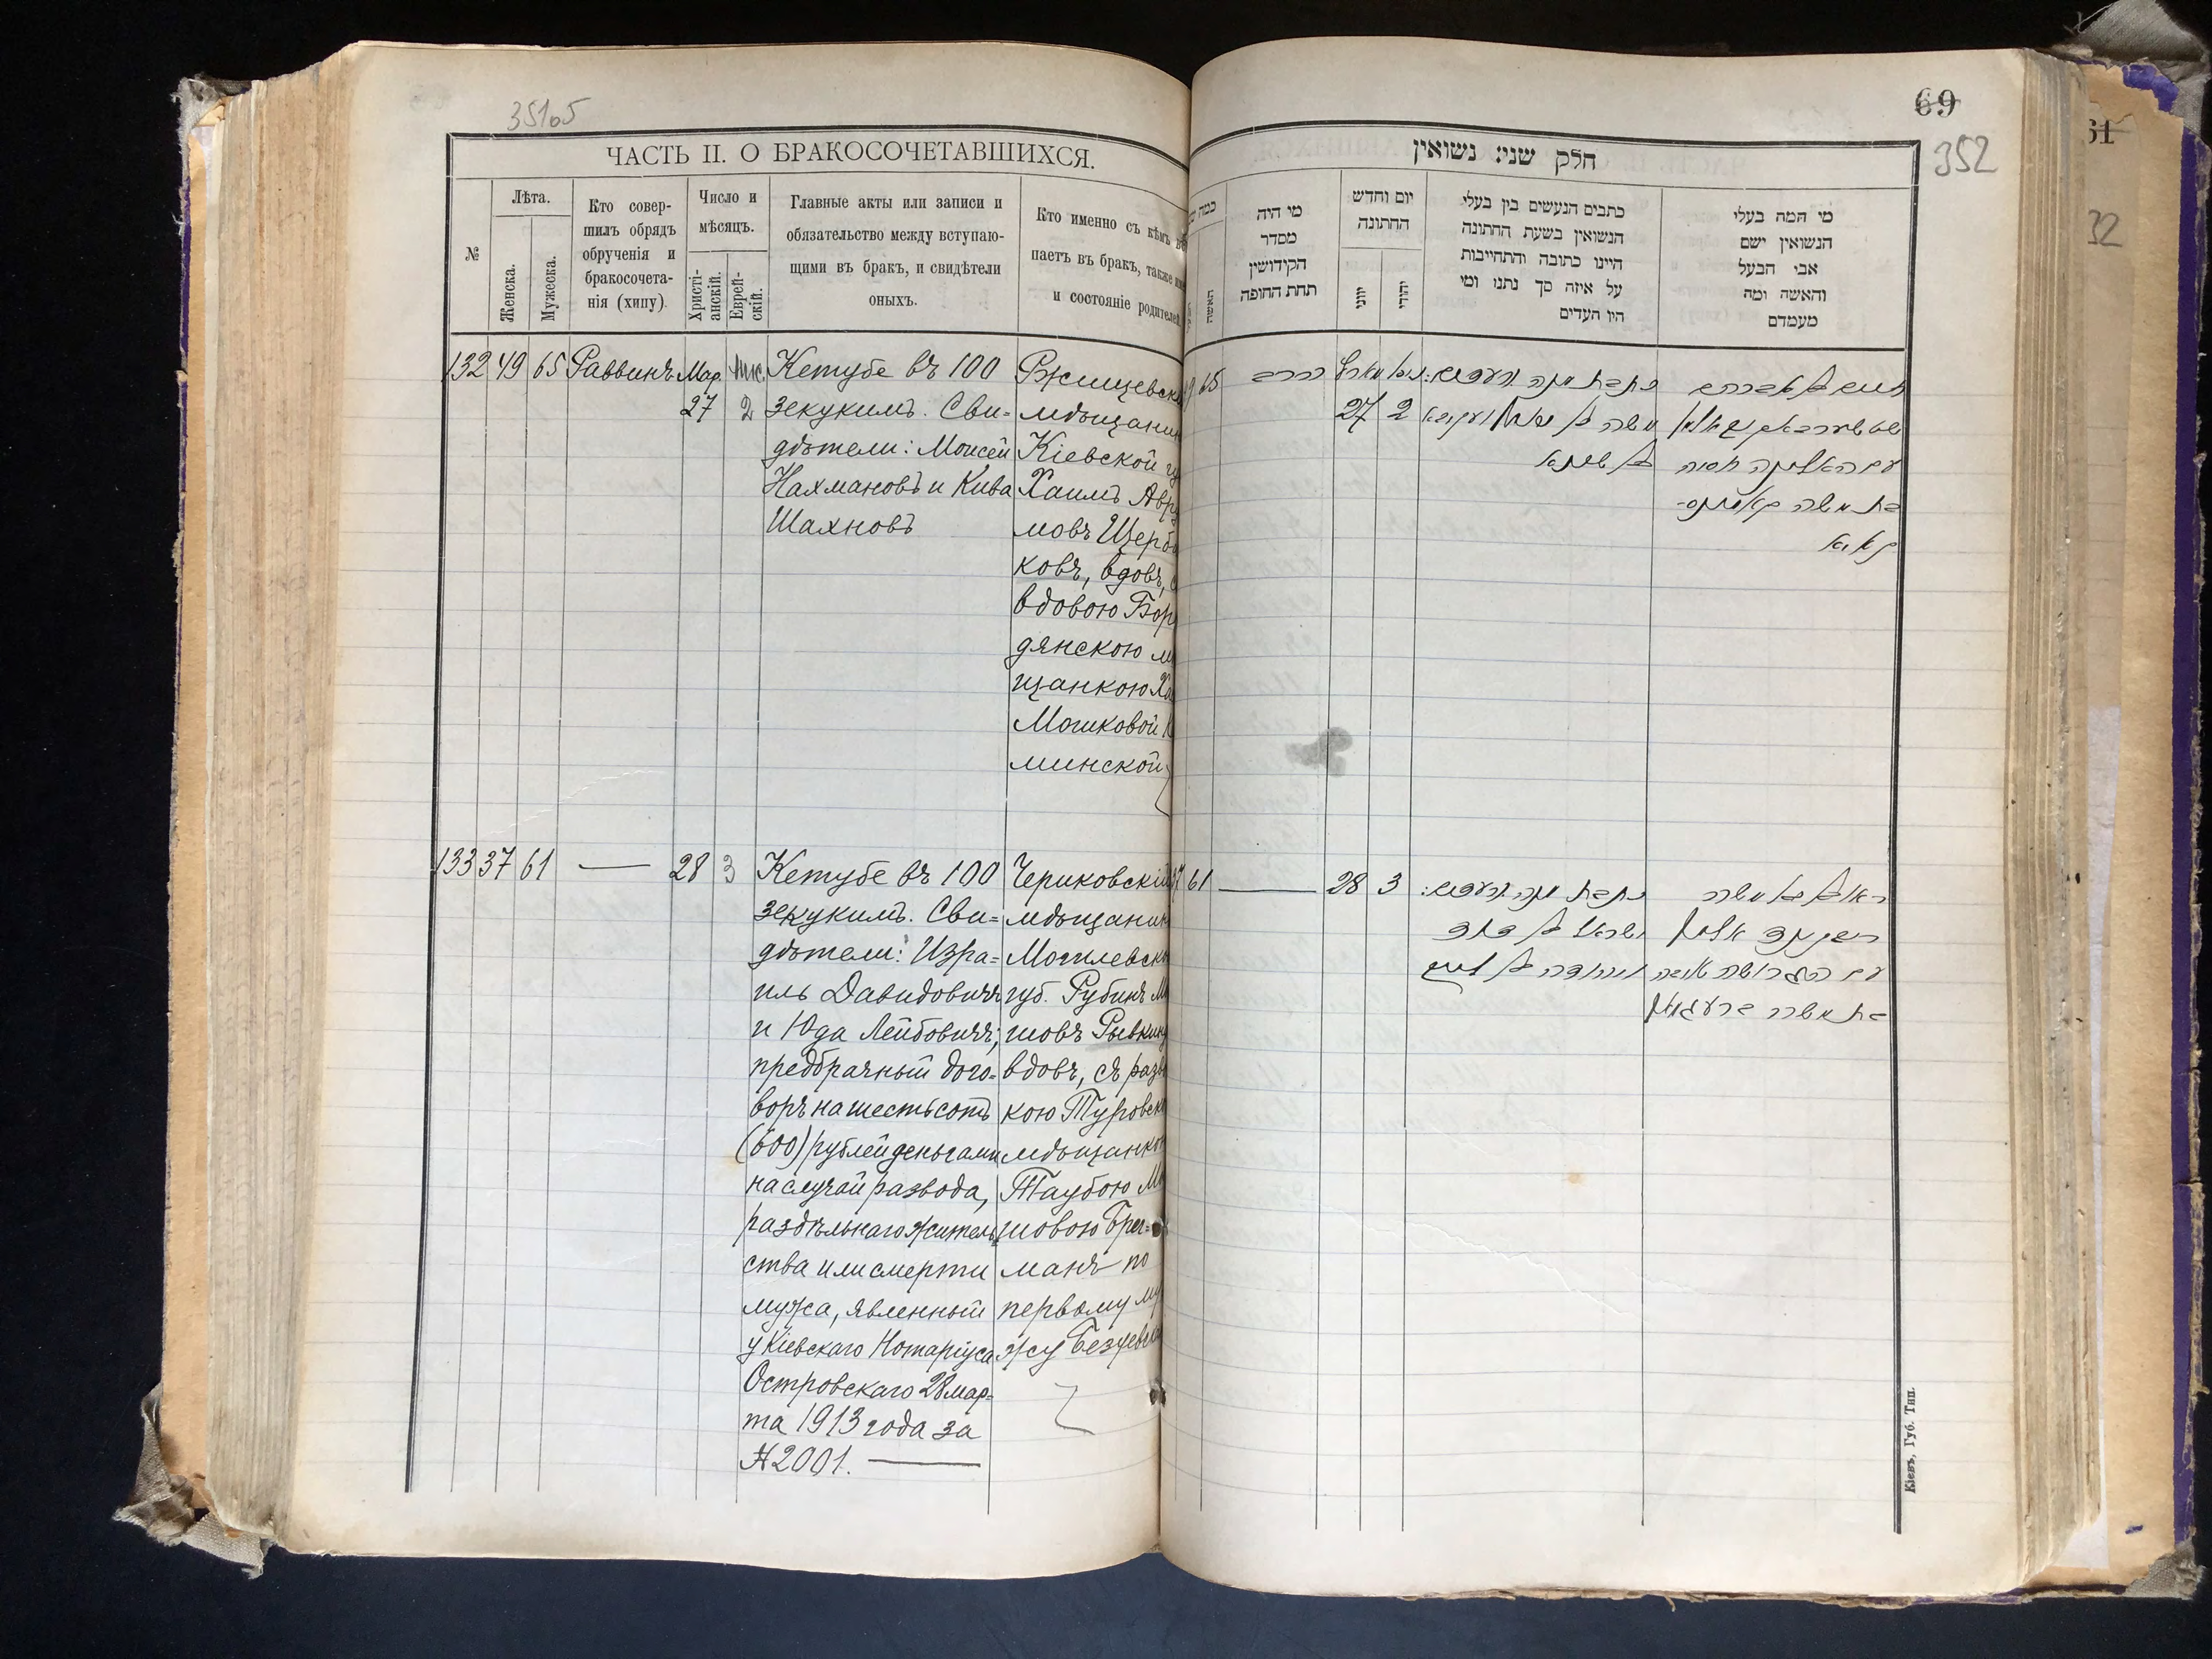 35105
ЧАСТЬ II. О БРАКОСОЧЕТАВШИХСЯ.
№
Лѣта.
Женска.
Мужеска.
Кто совер-
шилъ обрядъ
обрученія и
бракосочета-
нія (хипу).
Число и
мѣсяцъ.
Христі-
анскій.
Еврей-
скій.
Главные акты или записи и
обязательство между вступаю-
щими въ бракъ, и свидѣтели
оныхъ.
Кто именно съ кѣмъ
паетъ въ бракъ, также
и состояніе родителей
132 49 65 Раввинъ Мар.
27 2
Кетубе въ 100
зекукимъ. Сви=
дѣтели: Моисей
Нахмановъ и Кива
Шахновъ
Ржищевскі
мѣщанин
Кіевской гу
Хаимъ Авру
мовъ Щерба
ковъ, вдовъ, с
вдовою Бор
дянскою м
щанкою Ха
Мошковой
минской
133 37 61 — 28 3
Кетубе въ 100
зекукимъ. Сви=
дѣтели: Изра=
иль Давидовичъ
и Юда Лейбовичъ;
предбрачный дого=
воръ на шестьсотъ
(600) рублей деньгами
на случай развода,
раздѣльнаго житель
ства или смерти
мужа, явленный
у Кіевскаго Нотаріуса
Островскаго 28 мар=
та 1913 года за
№ 2001. —
Чериковскій
мѣщанин
Могилевско
губ. Рубинъ М
шовъ Рывкинъ
вдовъ, съ разво
кою Туровско
мѣщанкою
Таубою Мо
шовою Брег=
манъ по
первому му
жу Безуевско
69
352
חלק שני: נשואין
האשה
מי היה
מסדר
הקידושין
תחת החופה
יום וחדש
החתונה
יווני
יהודי
כתבים הנעשים בין בעלי
הנשואין בשעת החתונה
היינו כתובה והתחייבות
על איזה סך נתנו ומי
היו העדים
מי המה בעלי
הנשואין ישם
אבי הבעל
והאשה ומה
מעמדם
65 הרב
27 2
חיים בן אברהם
עם האלמנה חסיה
בת משה
37 61 — 28 3
ראובן בן משה
ריווקינד אלמן
עם הגרושה טויבה
בת משה ברעגמאן
ישראל בן דוד
ויהודה בן ליב
Кіевъ, Губ. Тип.
61
32